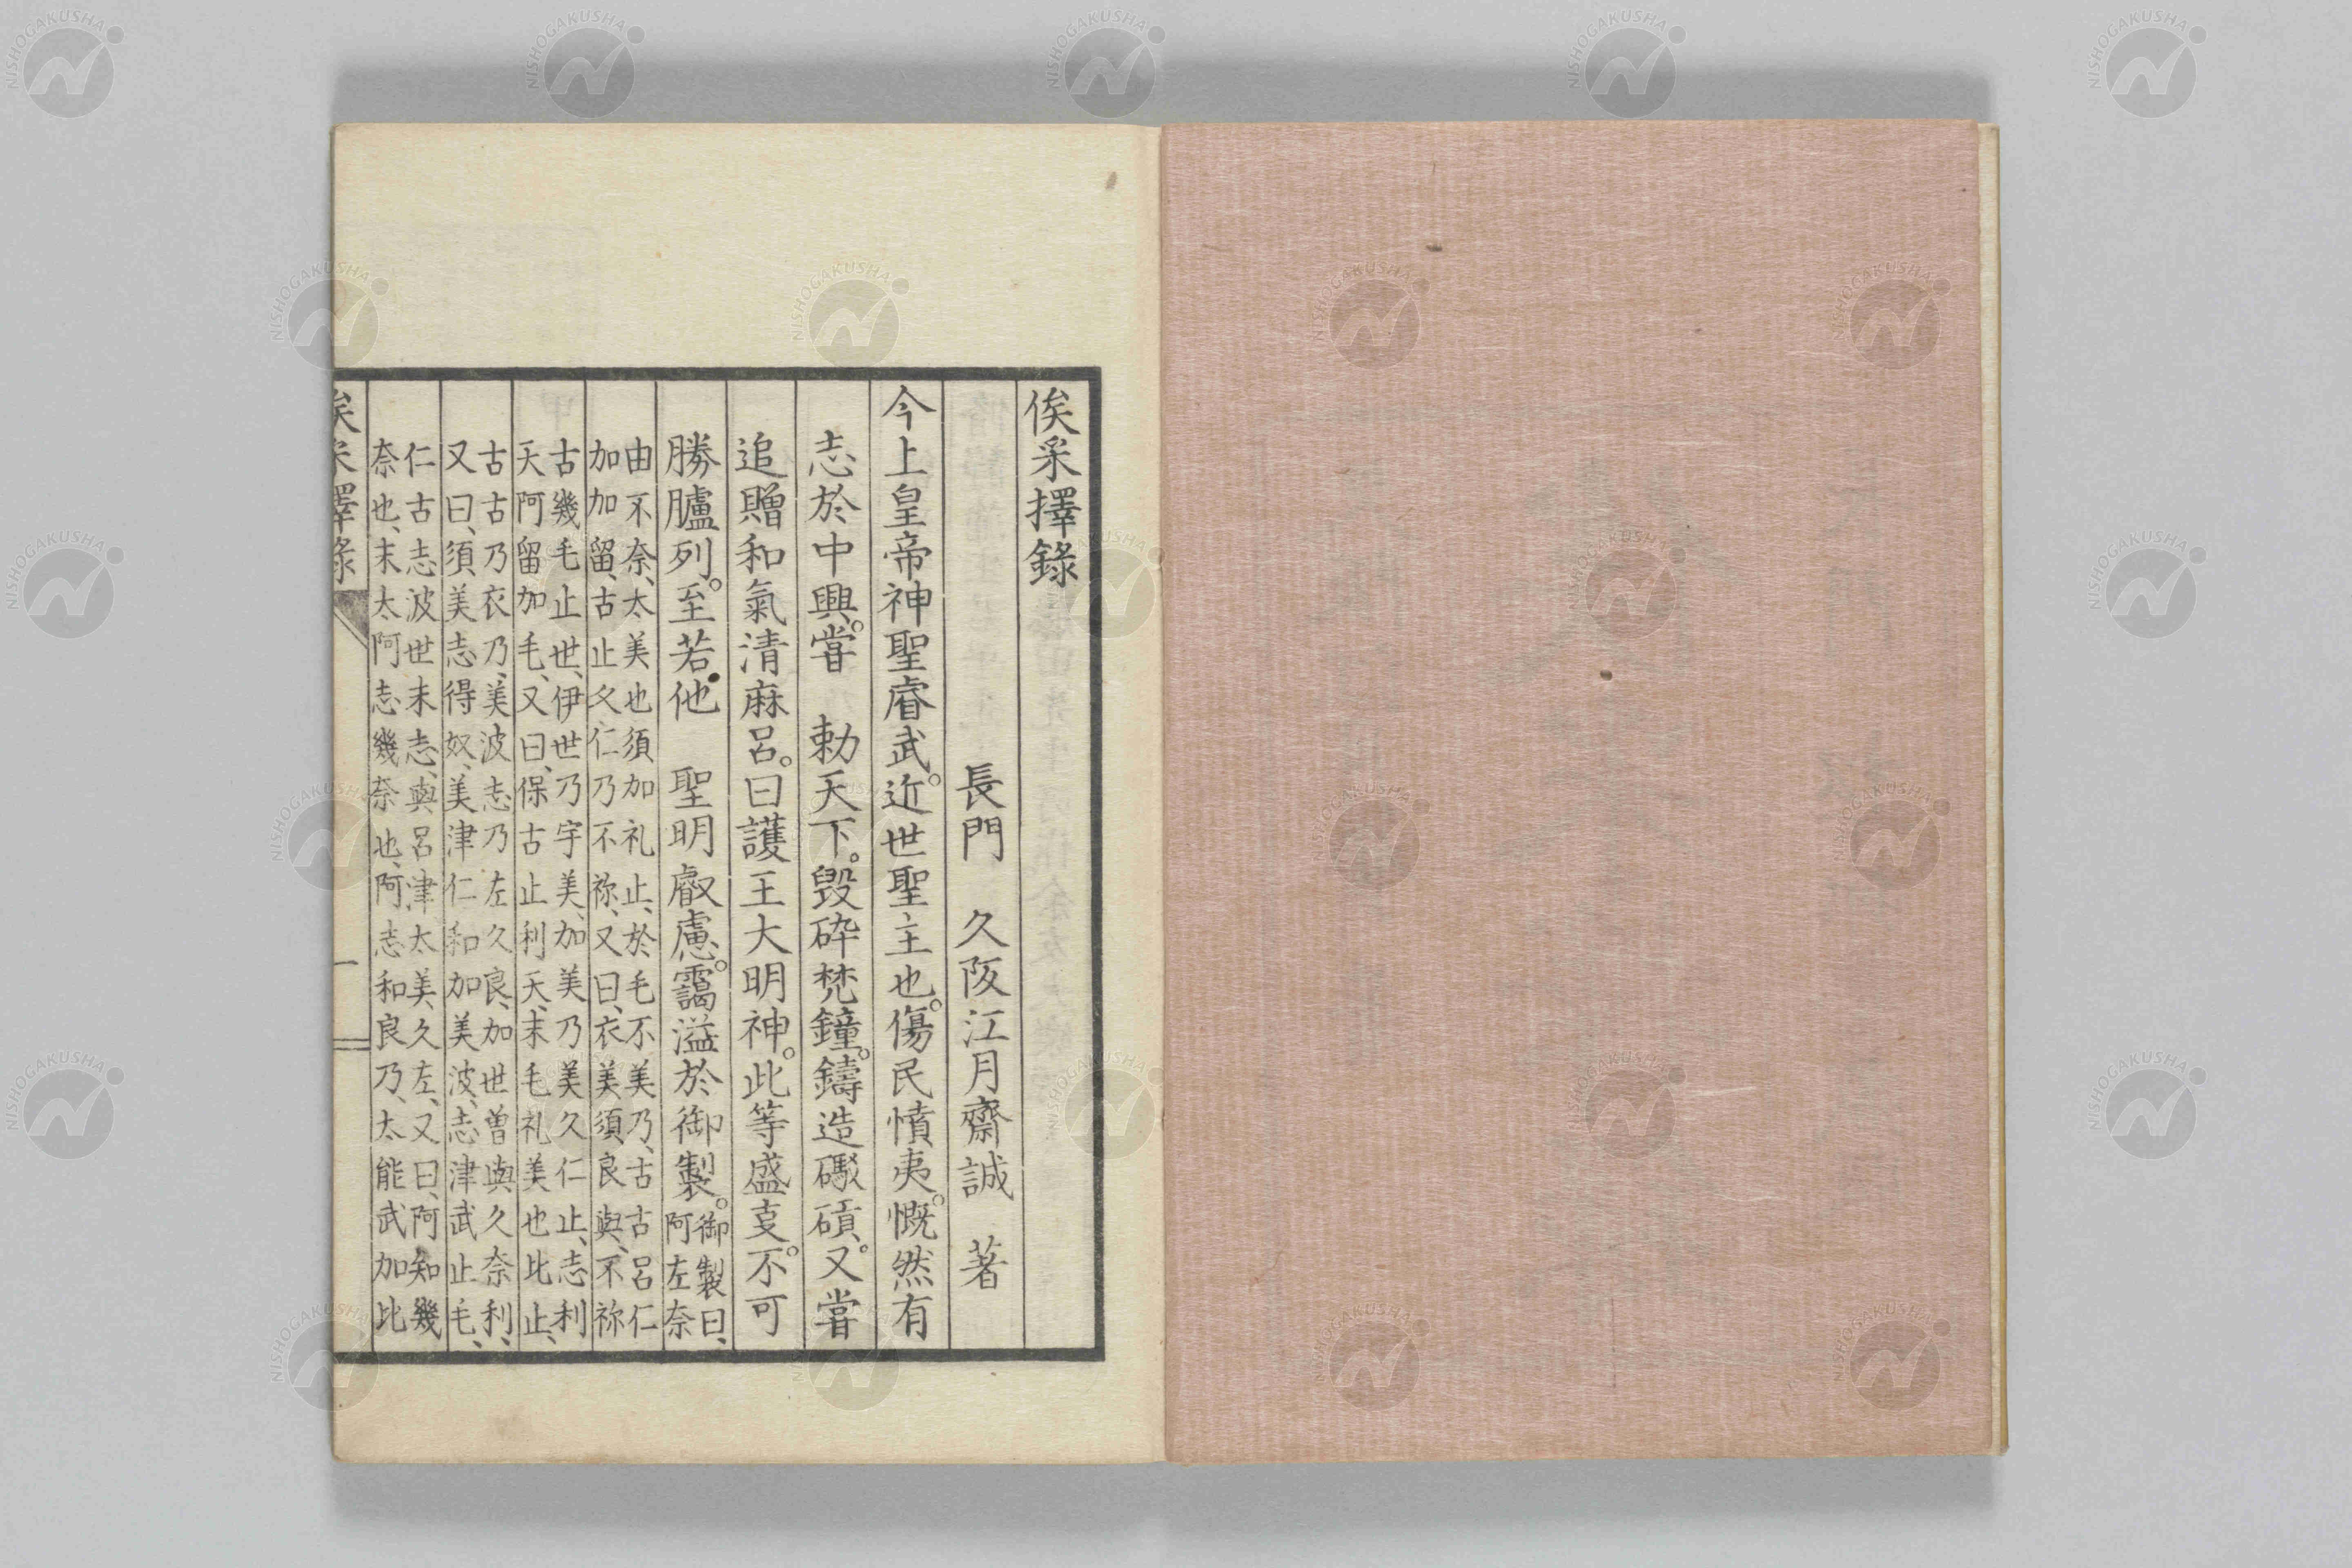 俟采擇錄
長門 久阪江月齋誠 著
今上皇帝神聖睿武。近世聖主也。傷民憤夷。慨然有
志於中興。嘗 勅天下。毀碎梵鐘。鑄造礮碩。又嘗
追贈和氣清麻呂。曰護王大明神。此等盛叓。不可
勝臚列。至若他 聖明叡慮。靄溢於御製。御製曰、
阿左奈
由不奈、太美也須加礼止、於毛不美乃、古古呂仁
加加留、古止久仁乃不祢、又曰、衣美須良與、不祢
古幾毛止世、伊世乃宇美、加美乃美久仁止、志利
天阿留加毛、又曰、保古止利天、末毛礼美也比止、
古古乃衣乃、美波志乃左久良、加世曽與久奈利、
又曰、須美志得奴、美津仁和加美波、志津武止毛、
仁古志波世末志、與呂津太美、久左、又曰、阿知幾
奈也、末太阿志幾奈也、阿志和良乃、太能武加比
俟采擇錄
一